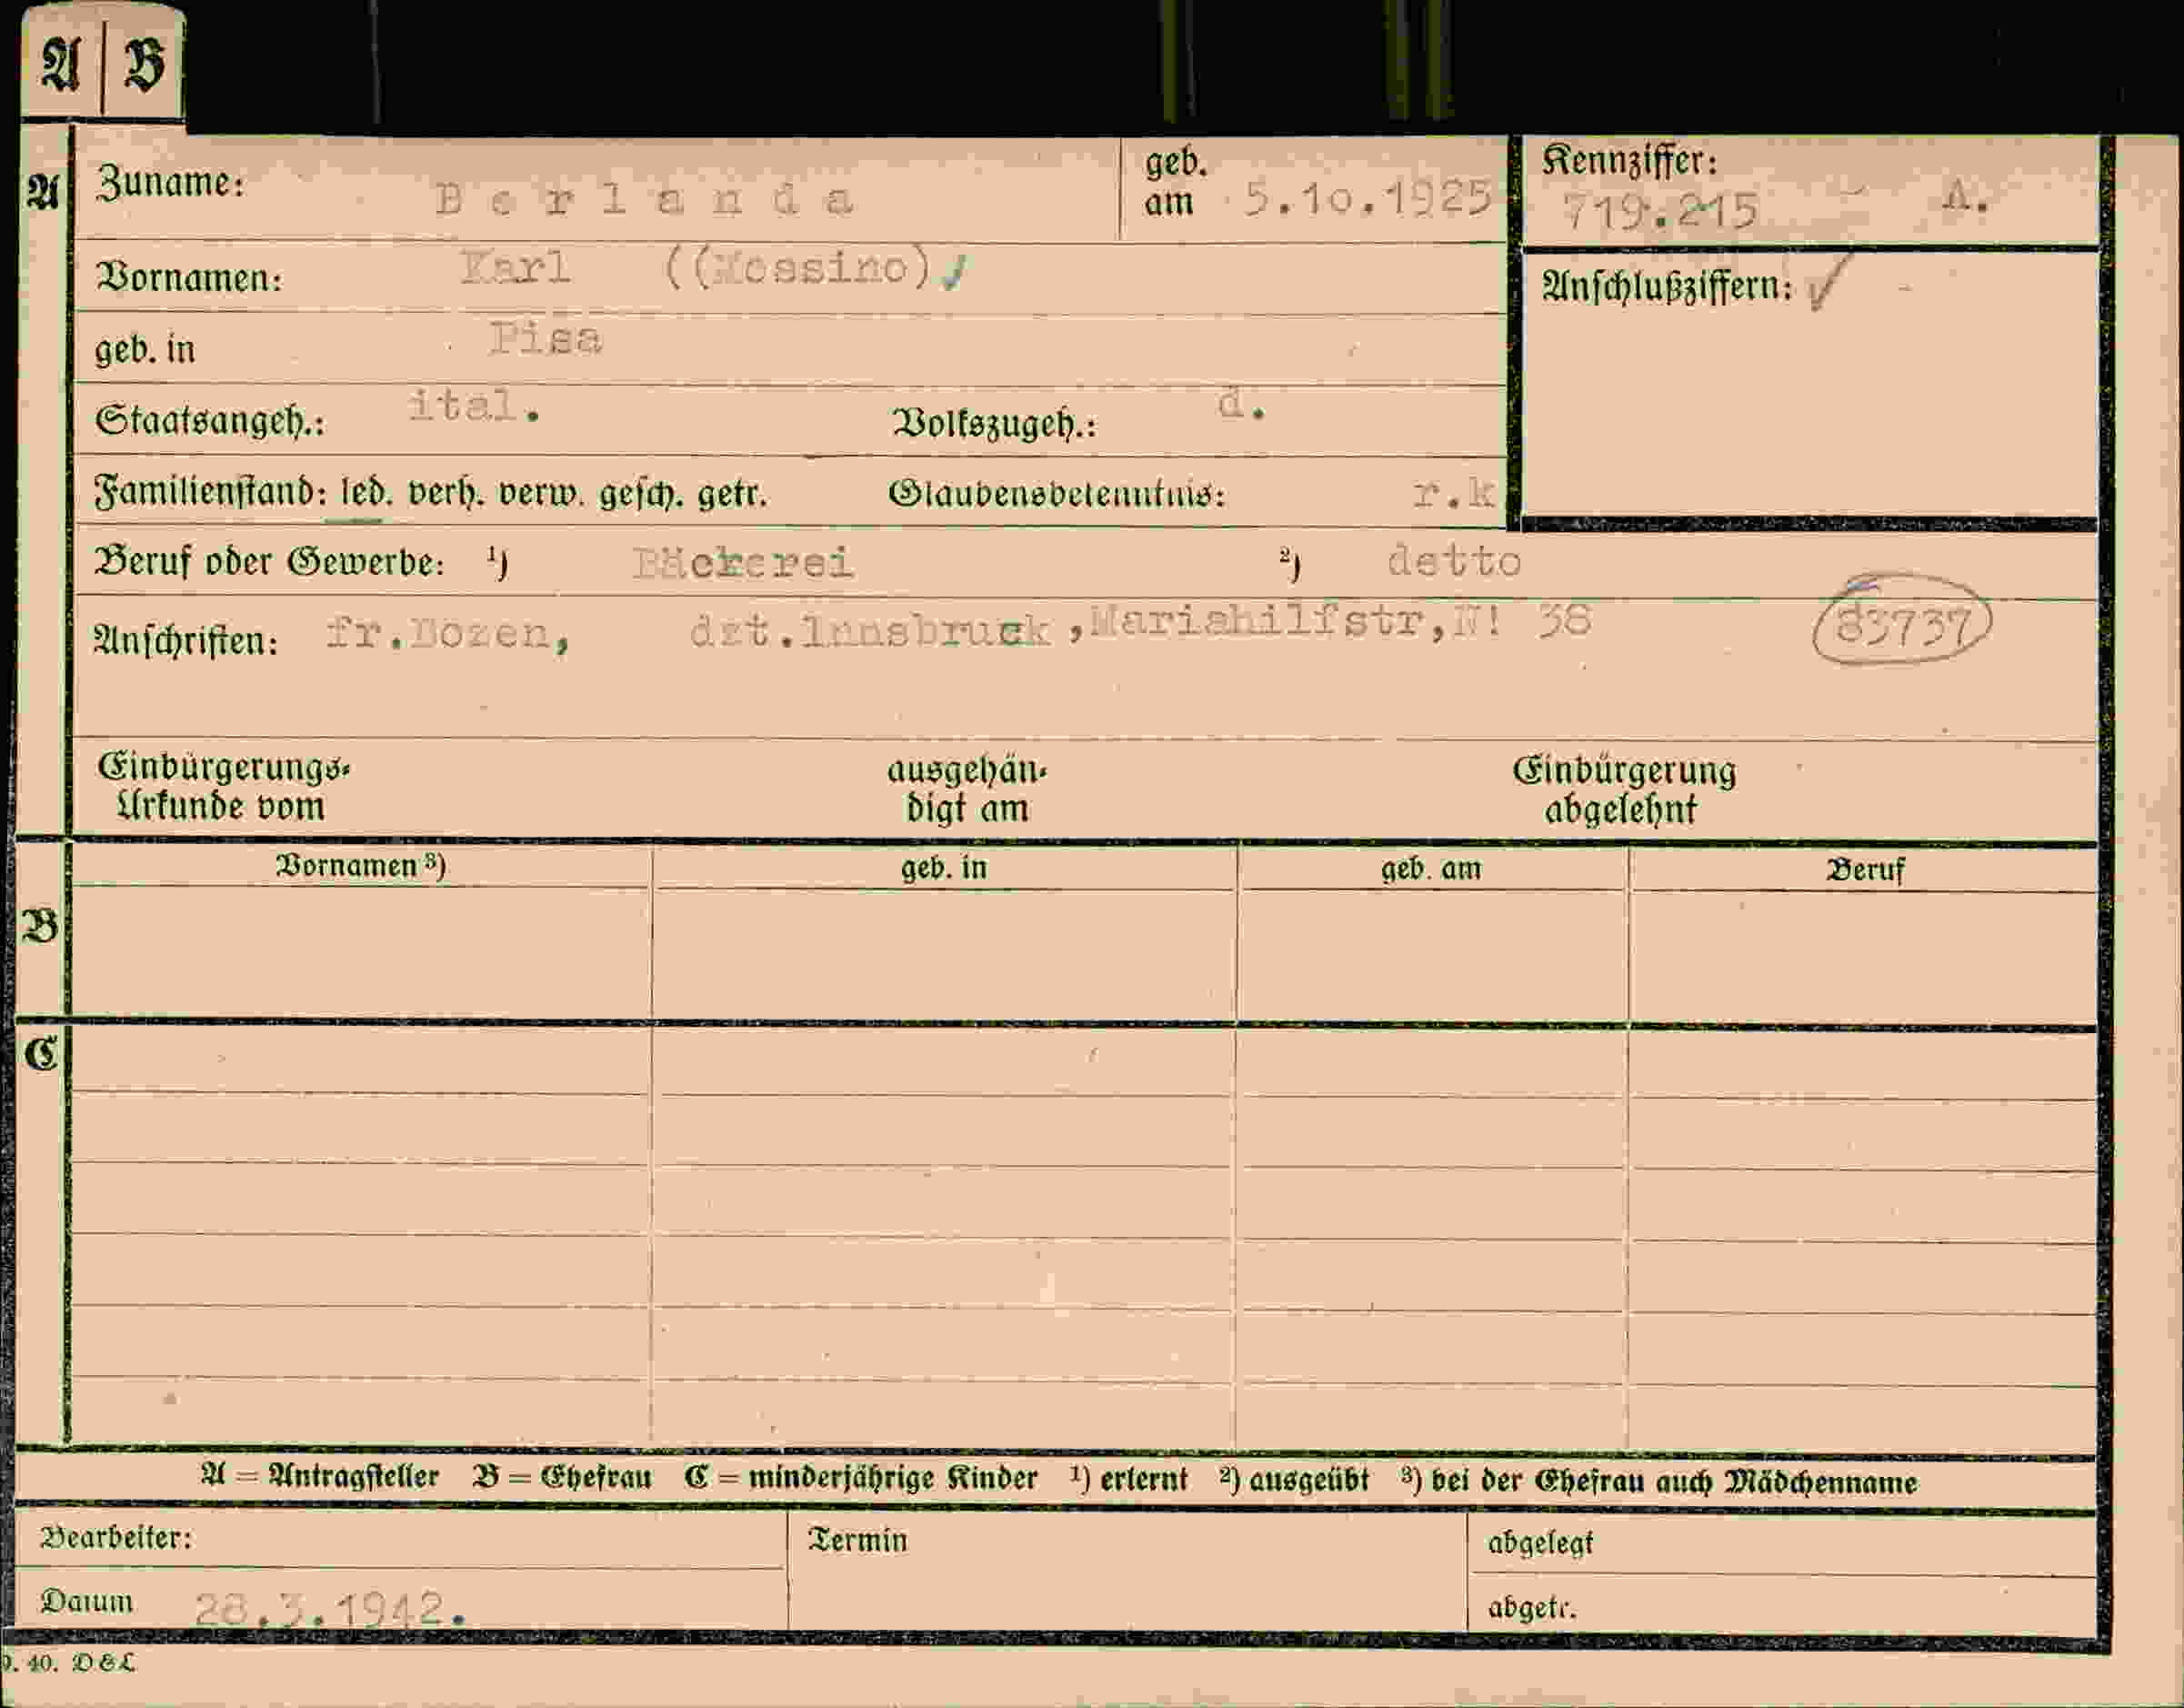 A | B
A
Zuname: Berlanda geb. am 5.10.1925
Kennziffer:
719.215 - A.
Vornamen: Karl ((Mossino)
Anschlußziffern: ✓ -
geb. in Pisa
Staatsangeh.: ital. Volkszugeh.: d.
Familienstand: led. verh. verw. gesch. getr. Glaubensbekenntnis: r.k
Beruf oder Gewerbe: ¹) Bäckerei ²) detto
Anschriften: fr.Bozen, dzt.Innsbruck,Mariahilfstr,N! 38 83737
Einbürgerungs-Urkunde vom ausgehän-digt am Einbürgerung abgelehnt
Vornamen ³) geb. in geb. am Beruf
B
C
A = Antragsteller B = Ehefrau C = minderjährige Kinder ¹) erlernt ²) ausgeübt ³) bei der Ehefrau auch Mädchenname
Bearbeiter: Termin abgelegt
Datum 28.3.1942. abgetr.
9. 40. D & L